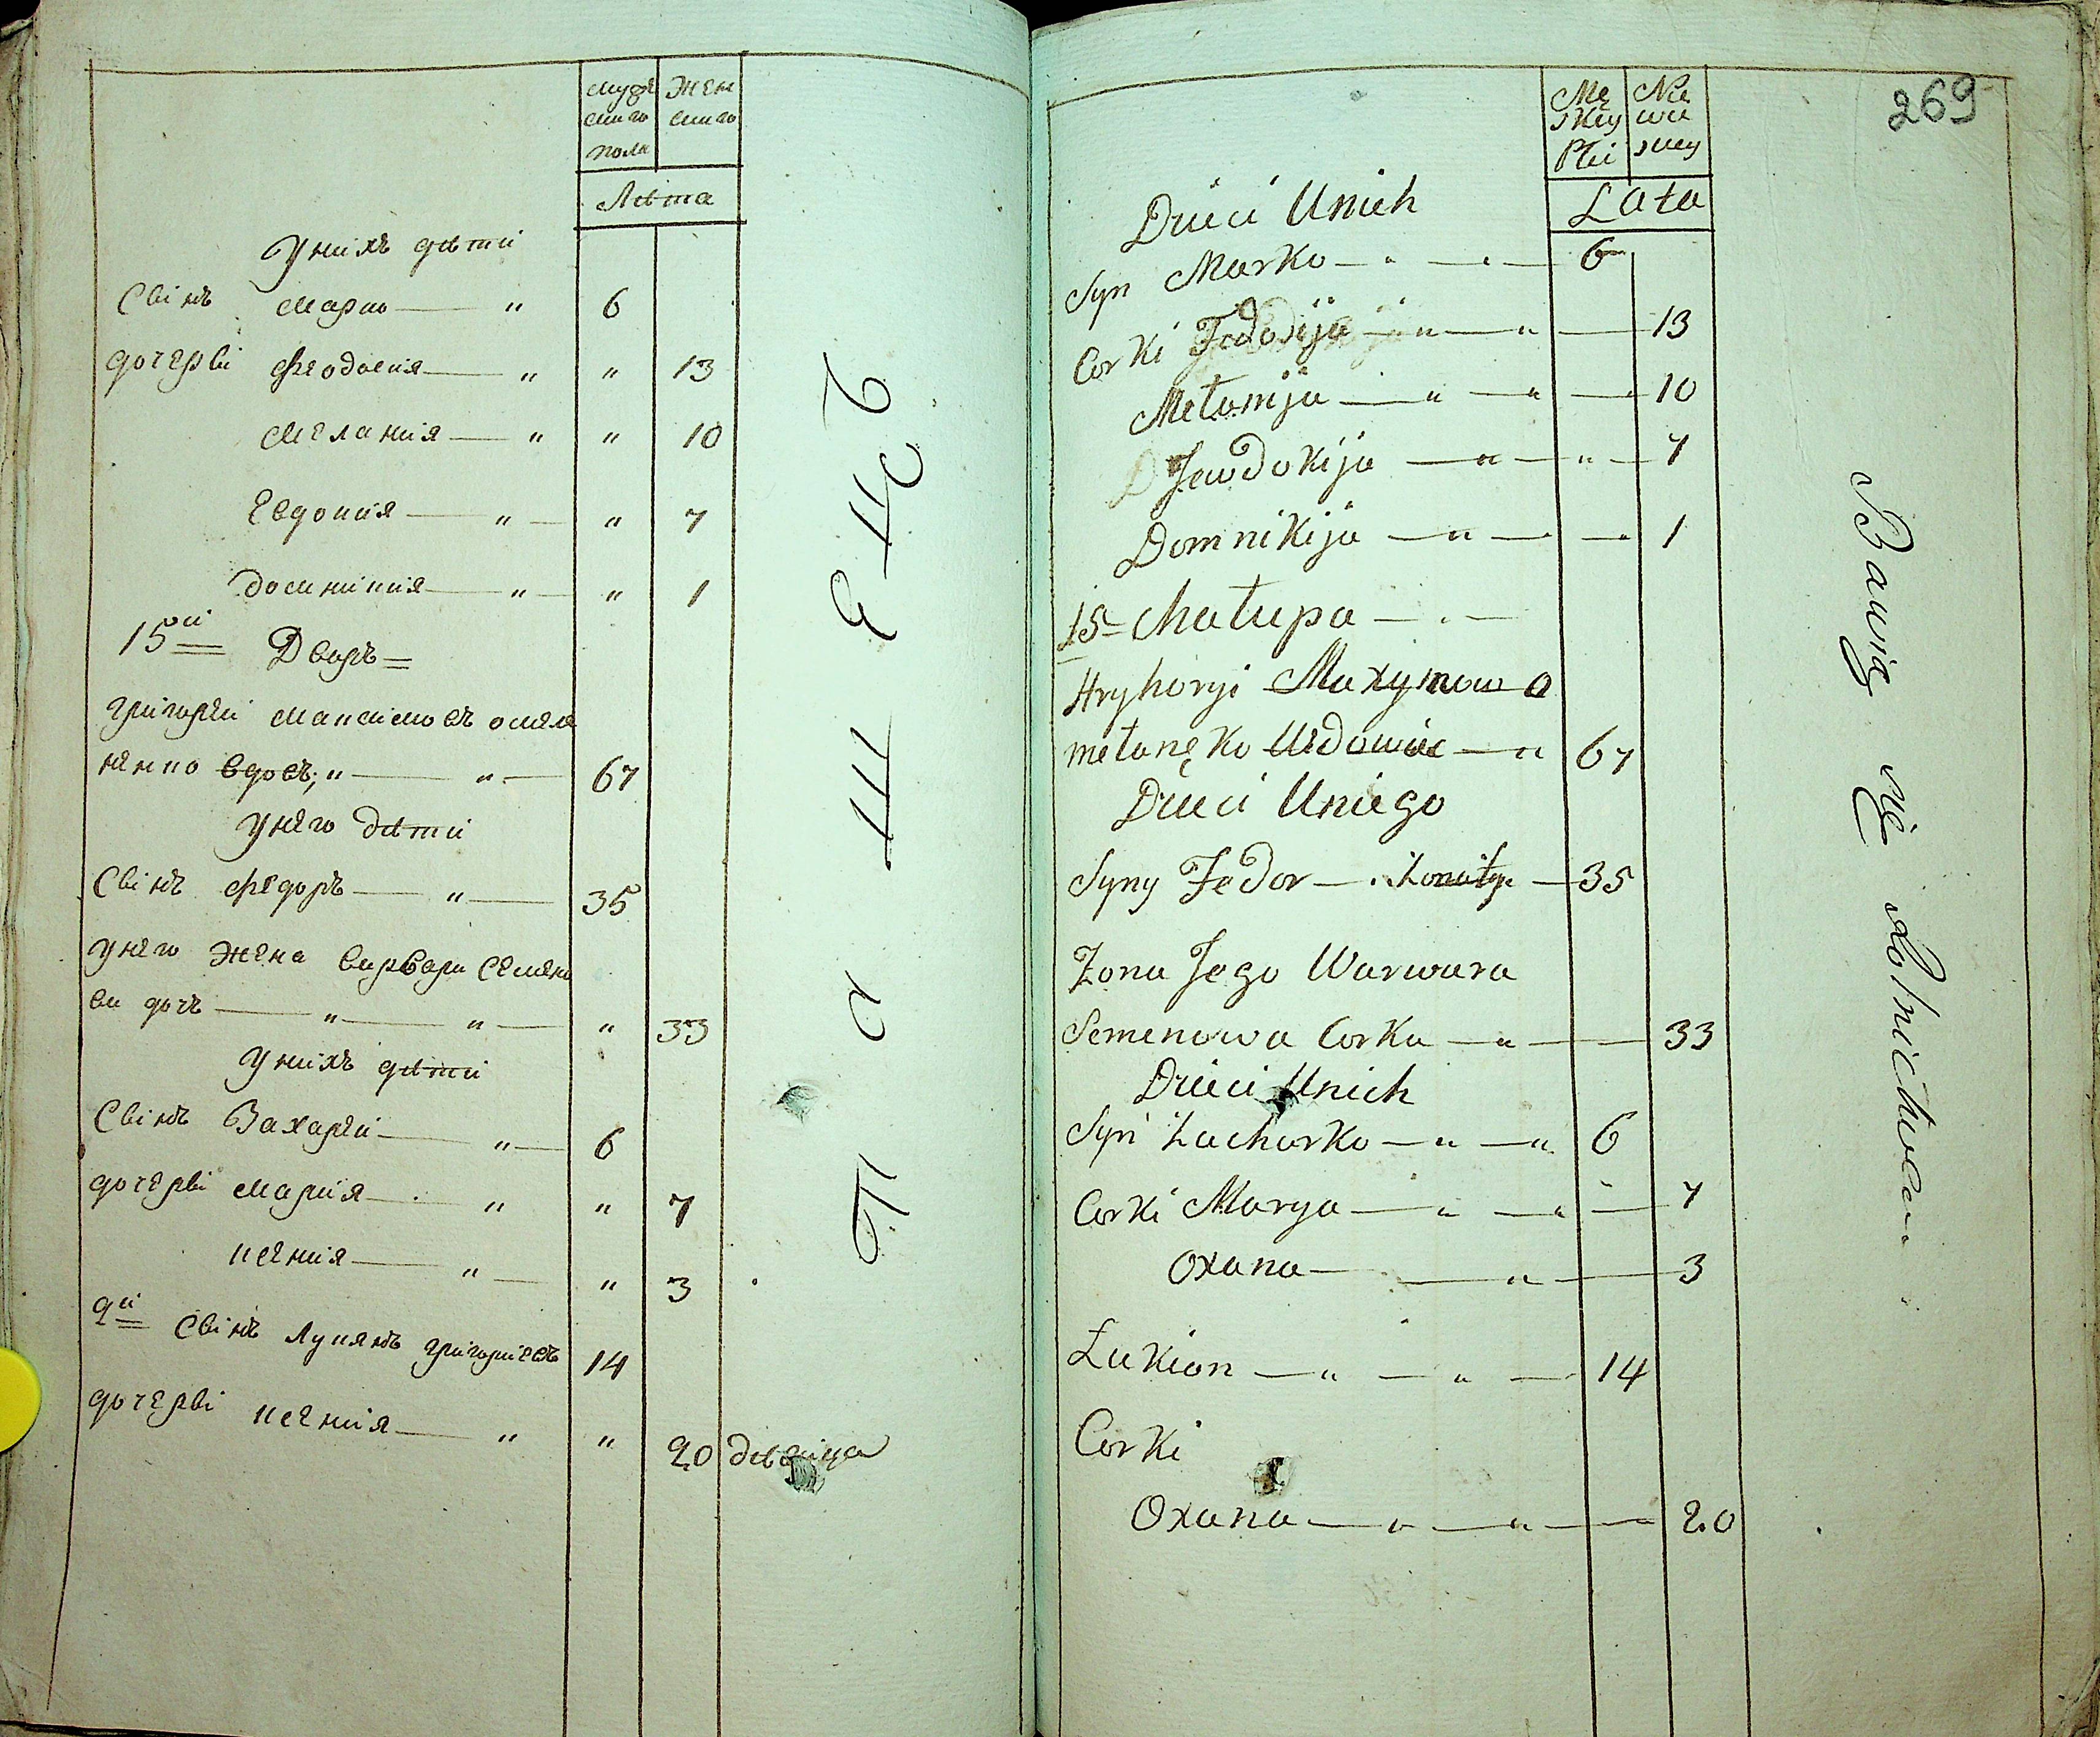 Мужес
скаго
пола
Жен
скаго
Лѣта
У нихъ дѣти
Сынъ Марко — " 6
дочери Феодосия — " " 13
Мелания — " " 10
Евдокия — " — " 7
Домникия — " — " 1
15ой Дворъ
Григорий Максимовъ омеля
ненко вдовъ; " — " — 67
У него дѣти
Сынъ Федоръ — " — 35
У него Жена Варвара Семено
ва дочь — " — " — " 33
У нихъ дѣти
Сынъ Захарий — " — 6
дочери Мария — " " 7
ксения — " — " 3
2й Сынъ Лукянъ Григориевъ 14
дочери ксения — " " 20 дѣвица
П а ш е т
269
Mę
skey
Płci
Nie
wie
scey
Lata
Dzieci Unich
Syn Marko — " — " — 6
Corki Fedosija — " — " — 13
Mełanija — " — " — 10
Jewdokija — " — " — 7
Domnikija — " — " — 1
15 Chałupa — " —
Hryhoryi Maxymow O
mełanęko Wdowiec — " 67
Dzieci Uniego
Syny Fedor — " żonaty — 35
Żona Jego Warwara
Semenowa Corka — " — 33
Dzieci Unich
Syn Zacharko — " — " 6
Corki Marya — " — " — 7
Oxana — " — 3
Łukian — " — " — 14
Corki
Oxana — " — " — 20
Bawią się rolnictwem